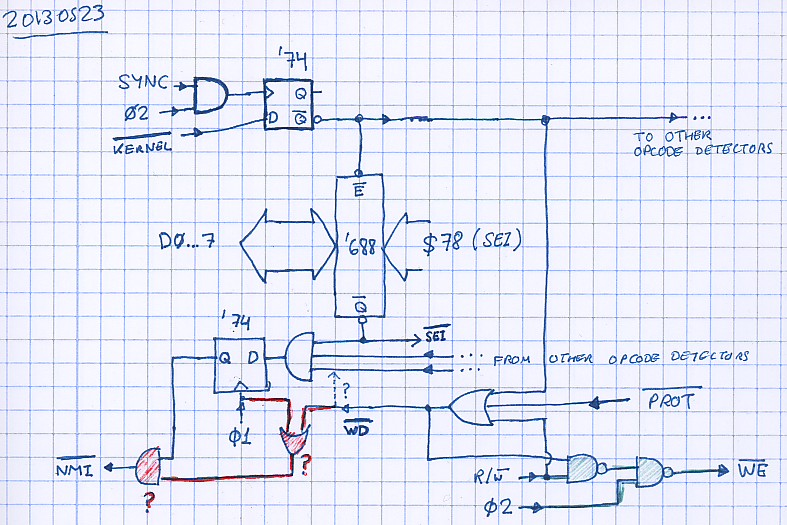 20130523
'74
SYNC
Ø2
KERNEL
D
Q
Q
...
TO OTHER
OPCODE DETECTORS
E
DØ...7
'688
$78 (SEI)
Q
'74
SEI
Q D
... FROM OTHER OPCODE DETECTORS
...
?
PROT
Ø1
WD
?
NMI
R/W
WE
?
Ø2